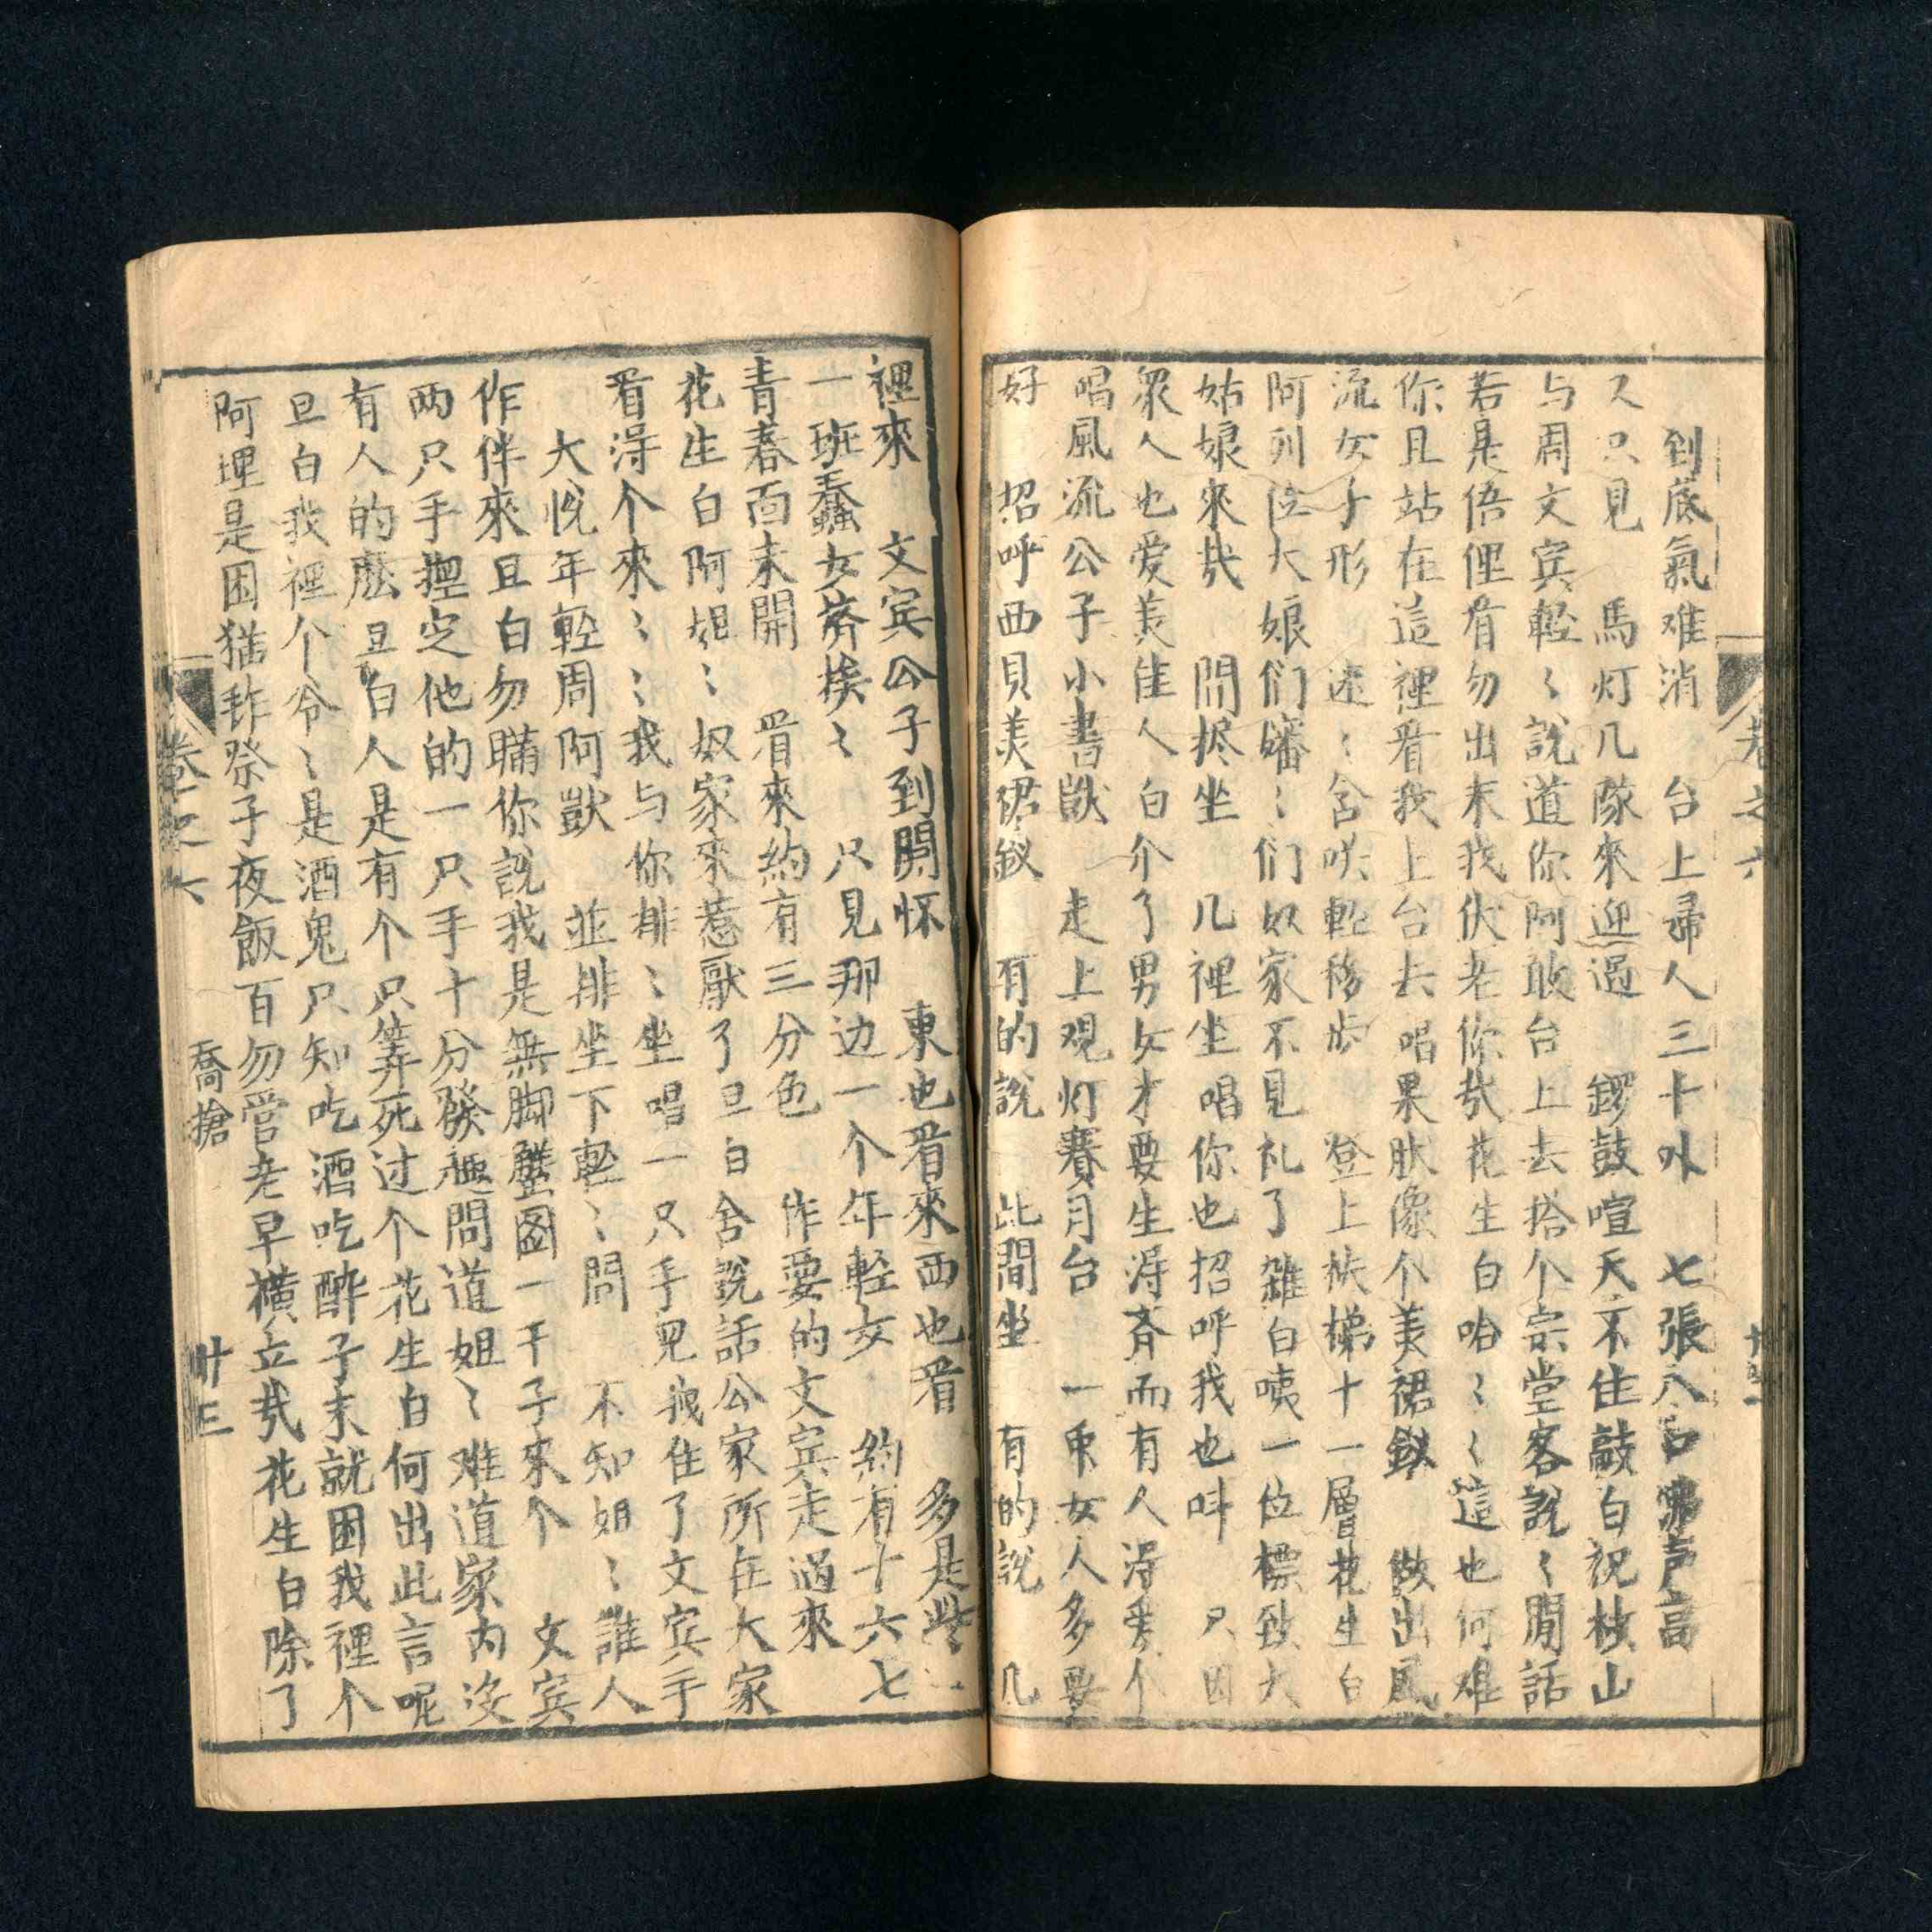 到底氣难消　台上歸人三十外　七張八口
又只見　馬灯几隊來迎過　鑼鼓喧天不住敲白祝枝山
与周文宾輕〻說道你阿敢台上去搭个宗堂客說〻閒話
若是倍俚看勿出末我伏老你㢤花生白哈〻〻這也何难
你且站在這裡看我上台去唱果肰像个美裙釵　做出風
流女子形　速〻含咲輕移步　登上扶梯十一層花生白
阿列位大娘们嬸〻们奴家不見礼了雜白咦一位標致大
姑娘來㢤　問㨗坐　几裡坐唱你也招呼我也呌　只因
衆人也爱美佳人白介了男女才要生淂斉而有人淂秀个
唱風流公子小書獃　走上观灯賽月台　一東女人多要
好　招呼西貝美裙釵　有的說　此間坐　有的說　几
卷之六
裡來　文宾公子到開怀　東也看來西也看　多是些
一班蠢女㒰挨〻　只見那边一个年輕女　約有十六七
青春面未開　看來約有三分色　作耍的文宾走過來
花生白阿姐〻奴家來惹厭了旦白舍說話公家所在大家
看淂个來〻〻我与你排〻坐唱一只手兒挽住了文宾手
大悅年輕周阿獃　並排坐下輕〻問　不知姐〻誰人
作伴來旦白勿瞞你說我是無脚蠏囡一干子來个　文宾
两只手揑定他的一只手十分發趣問道姐〻难道家内沒
有人的麽旦白人是有个只筭死过个花生白何出此言呢
旦白我裡个爷〻是酒鬼只知吃酒吃酔子末就困我裡个
阿埋是困猫乍祭子夜飯百勿管老早橫立㢤花生白除了
卷之六　喬搶　卅三